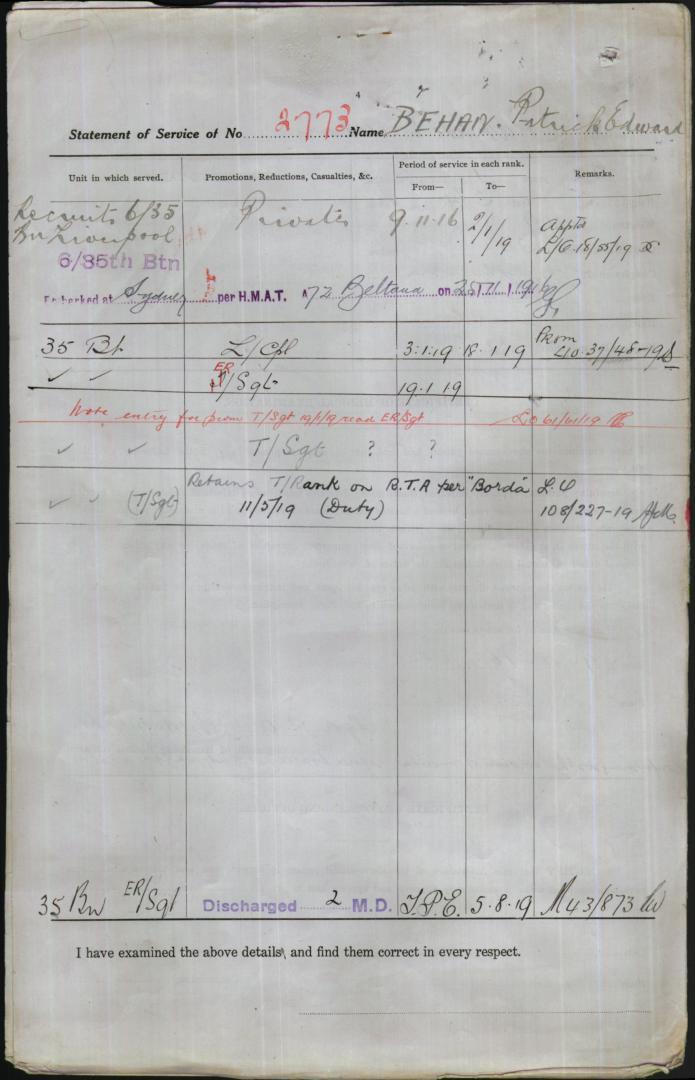 4
Statement of Service of No 2773 Name BEHAN. Patrick Edward
Unit in which served.
Promotions, Reductions, Casualties, &c.
Period of service in each rank.
From—
To—
Remarks.
Recruits 6/35
Bn Liverpool
Private
9.11.16
2/1/19
Appts
L/O 18/55/19
6/35th Btn
Embarked at Sydney per H.M.A.T. A72 Beltana on 25 11 1916
35 Bt L/Cpl 3.1.19 18.1.19 Prom
L/O.37/48-19
✓ ✓ ER
T/Sgt 19.1.19
Note entry for prom T/Sgt 19/1/19 read ER/Sgt L O 61/61/19
✓ ✓ T/Sgt ? ?
Retains T/Rank on R.T.A per "Borda" L.O
✓ ✓ (T/Sgt) 11/5/19 (Duty) 108/227-19
35 Bn ER/Sgt Discharged 2 M.D. T.P.E. 5.8.19 M43/873
I have examined the above details, and find them correct in every respect.